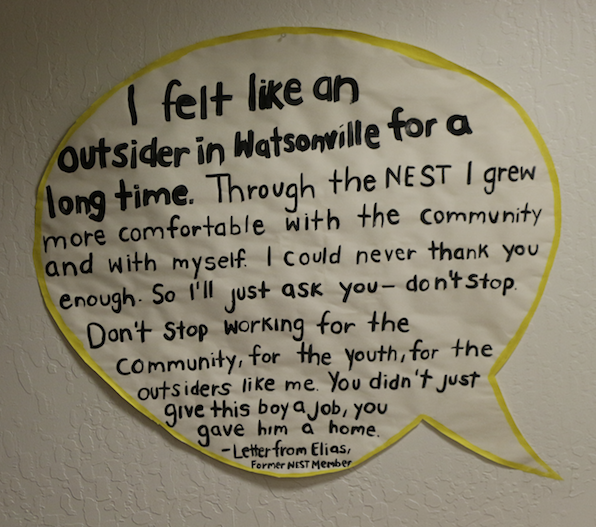 I felt like an
outsider in Watsonville for a
long time. Through the NEST I grew
more comfortable with the community
and with myself. I could never thank you
enough. So I'll just ask you – don't stop.
Don't stop working for the
community, for the youth, for the
outsiders like me. You didn't just
give this boy a job, you
gave him a home.
-Letter from Elias,
Former NEST Member